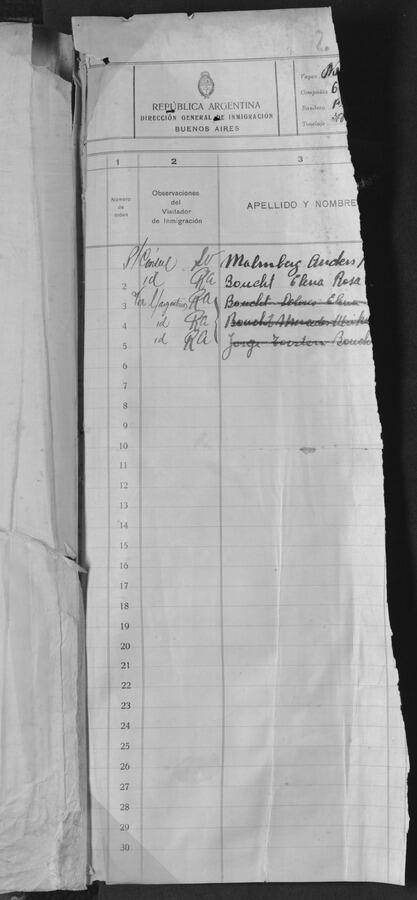 2.
REPÚBLICA ARGENTINA
DIRECCIÓN GENERAL DE INMIGRACIÓN
BUENOS AIRES
Vapor
Compañía
Bandera
Tonelaje
1 2 3
Número de orden
Observaciones del Visitador de Inmigración
APELLIDO Y NOMBRE
Malmberg Anders
2 id RA Boucht Elena Rosa
3 RA Boucht Elena
4 id RA Boucht Mercedes
5 id RA Jorge Torsten Boucht
6
7
8
9
10
11
12
13
14
15
16
17
18
19
20
21
22
23
24
25
26
27
28
29
30